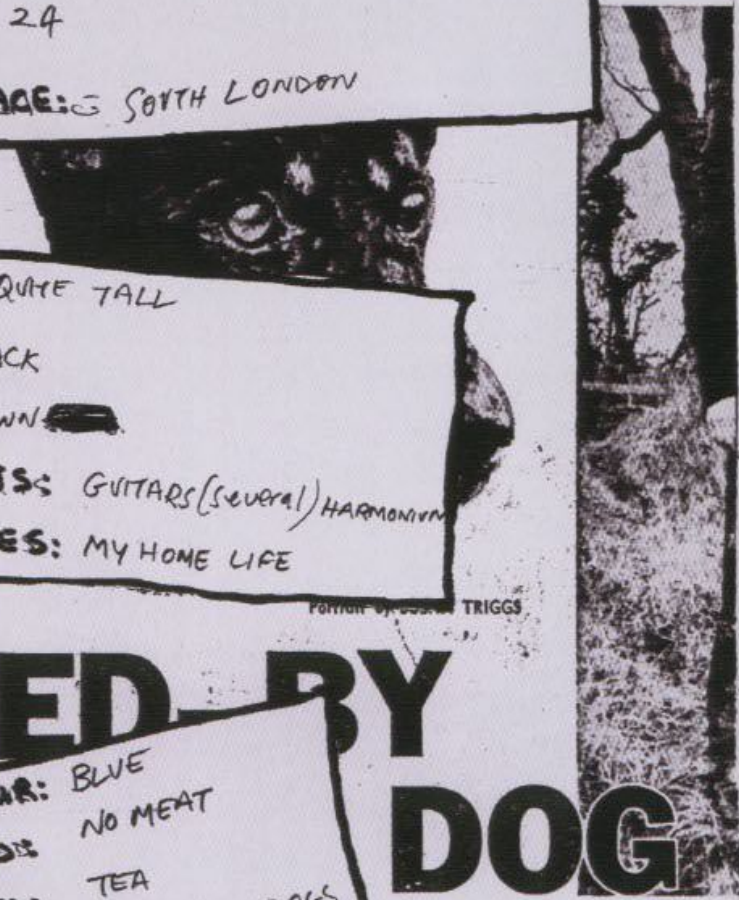 24
AGE: SOUTH LONDON
QUITE TALL
ACK
WN
TS: GUITARS (several) HARMONIUM
ES: MY HOME LIFE
Portrait by TRIGGS
ED BY
AR: BLUE
NO MEAT
DOG
TEA